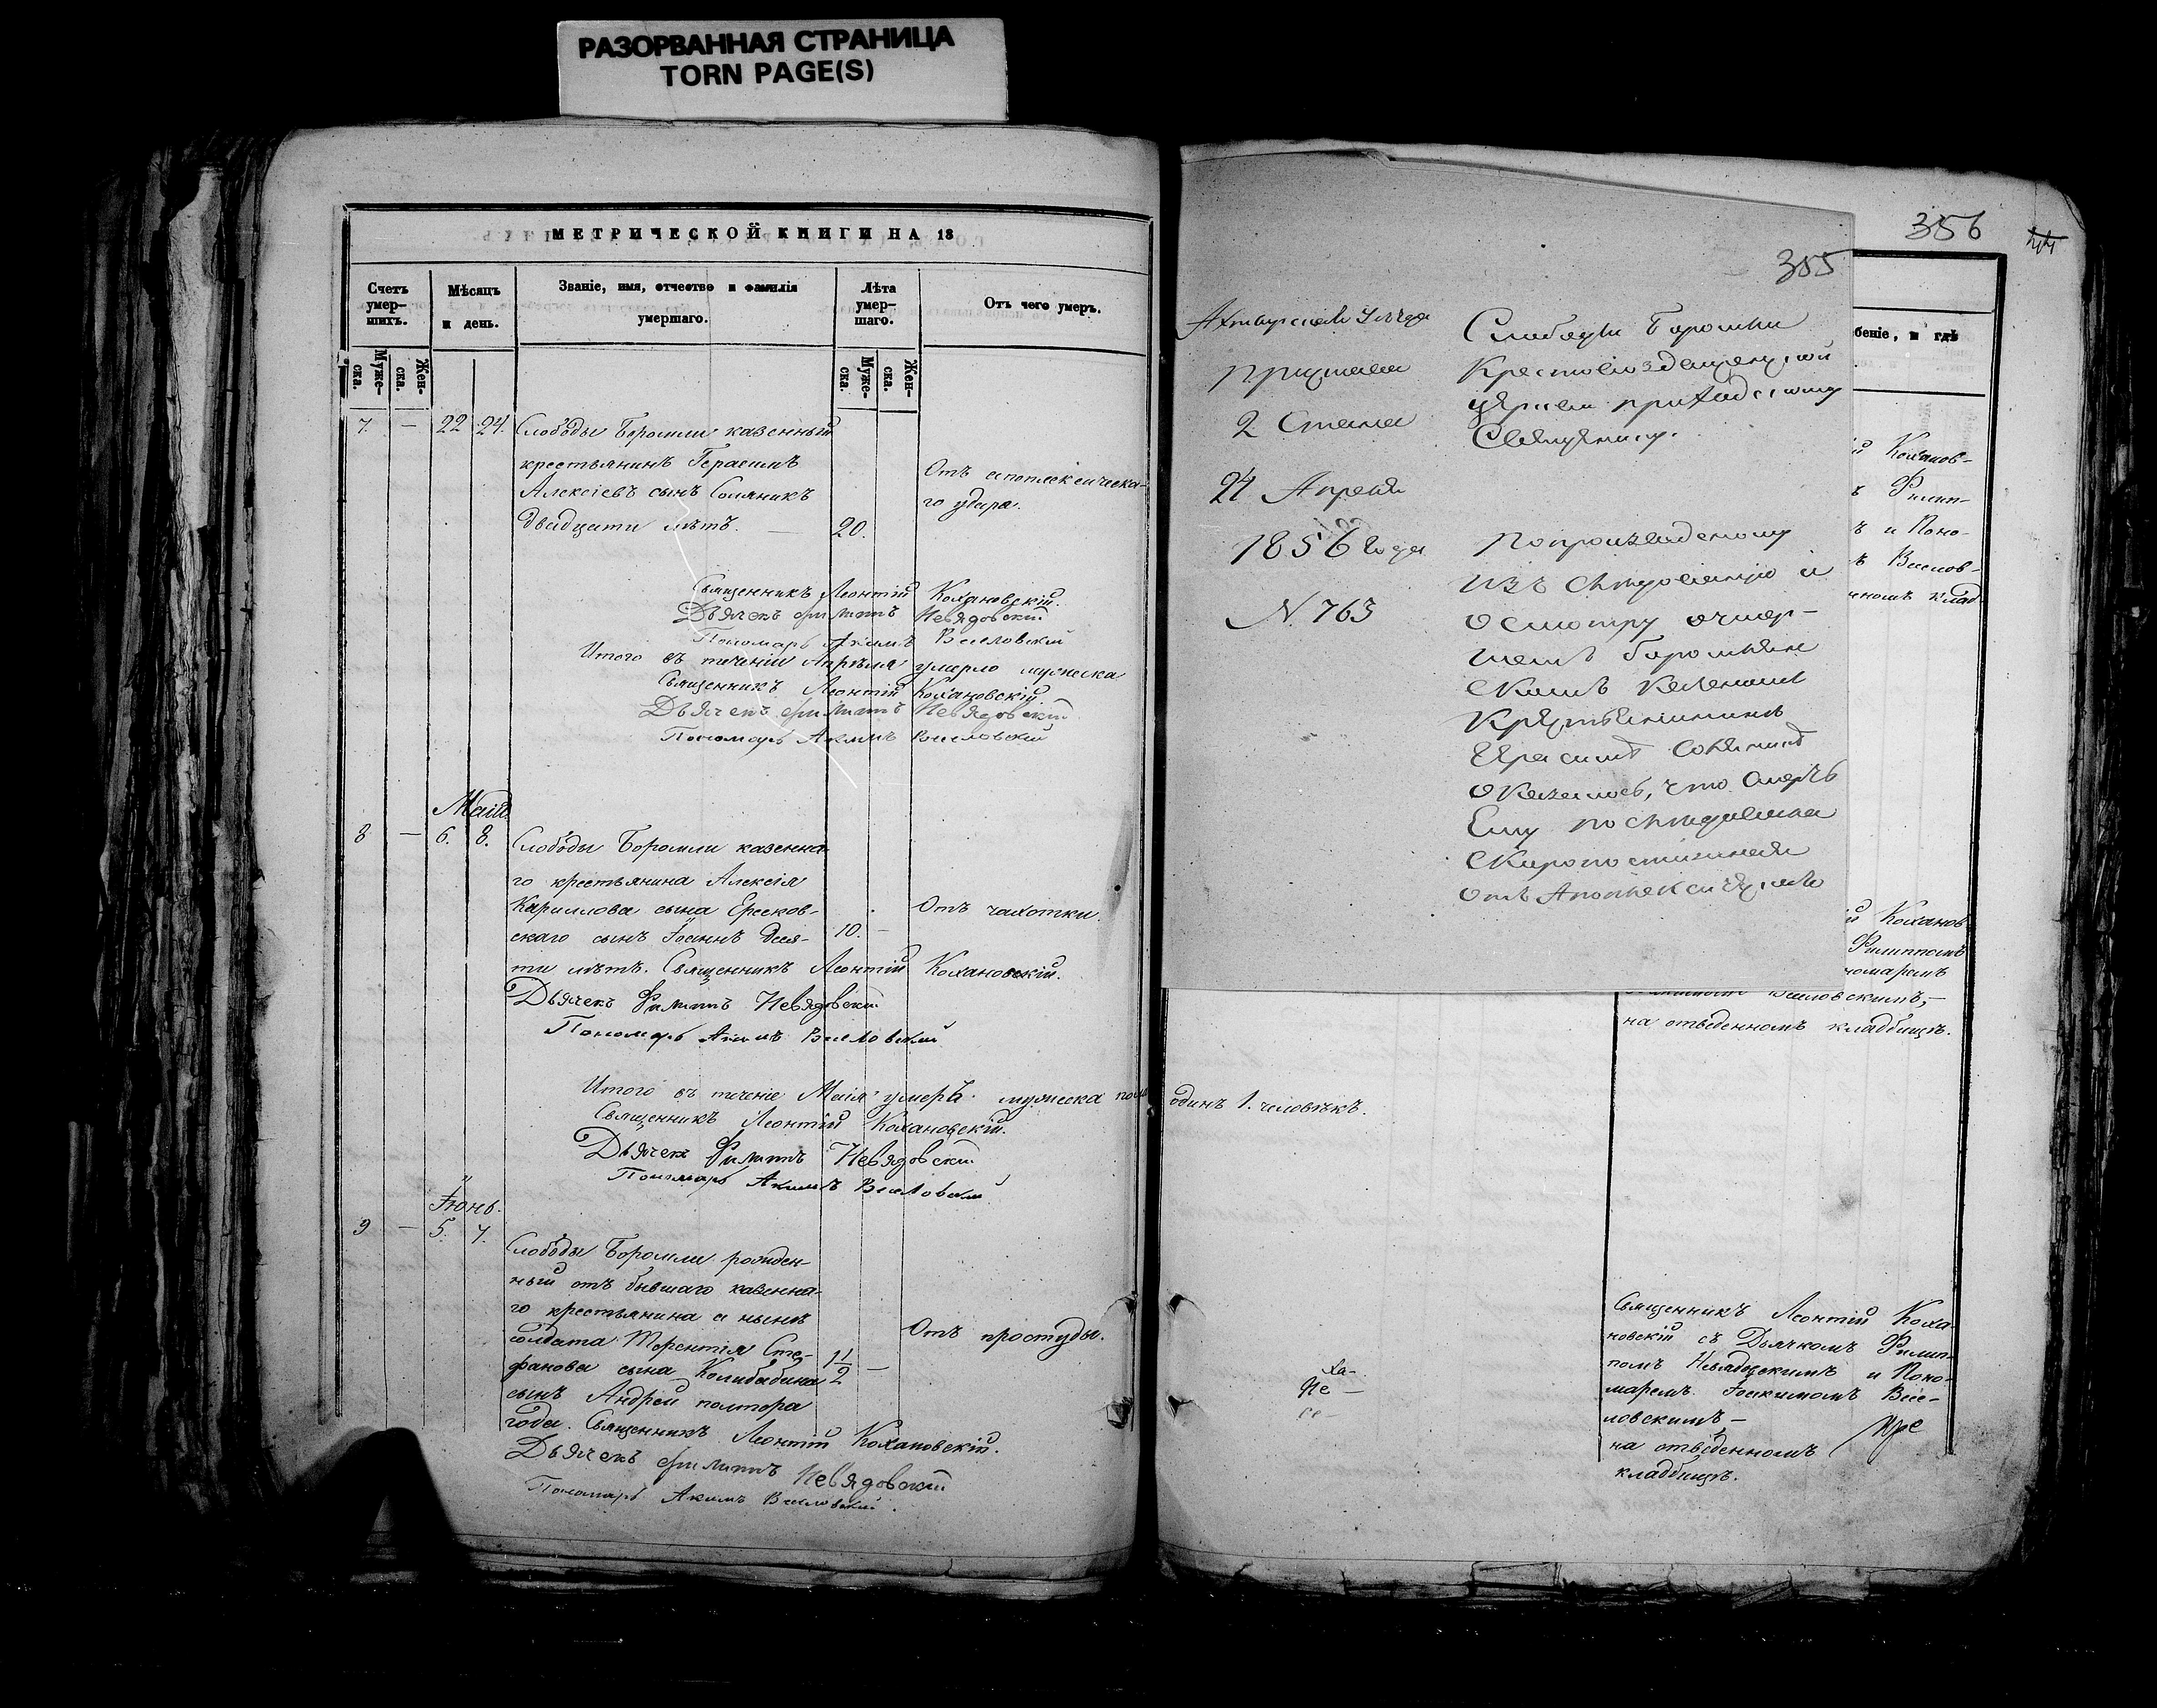 РАЗОРВАННАЯ СТРАНИЦА
TORN PAGE(S)
МЕТРИЧЕСКОЙ КНИГИ НА 18
Счетъ умер-шихъ.
Мѣсяцъ и день.
Званіе, имя, отчество и фамилія умершаго.
Лѣта умер-шаго.
Отъ чего умеръ.
Муже-ска.
Жен-ска.
Муже-ска.
Жен-ска.
7. — 22 24. Слободы Боромли казенный
крестьянинъ Герасимъ
Алексіевъ сынъ Соляникъ
двадцати лѣтъ. — 20.
Отъ апоплексическа-
го удара.
Священникъ Леонтій Кохановскій.
Дьячекъ Филиппъ Невядовскій
Пономарь Акимъ Виеловскій
Итого въ теченіи Апрѣля умерло мужеска
Священникъ Леонтій Кохановскій
Дьячекъ Филиппъ Невядовскій
Пономарь Акимъ Виеловскій
Маій
8 — 6. 8. Слободы Боромли казенна-
го крестьянина Алексія
Кариллова сына Ересков-
скаго сынъ Іоаннъ деся-
10. —
Отъ чахотки.
ти лѣтъ. Священникъ Леонтій Кохановскій.
Дьячекъ Филиппъ Невядовскій
Пономарь Акимъ Виеловскій
Итого въ теченіе Маія умеръ мужеска пола одинъ 1. человѣкъ.
Священникъ Леонтій Кохановскій.
Дьячекъ Филиппъ Невядовскій
Пономарь Акимъ Виеловскій
Іюнь.
9 — 5. 7. Слободы Боромли рожден-
ный отъ бывшаго казенна-
го крестьянина а нынѣ
солдата Терентія Сте-
фанова сына Колибабина
1 1/2 —
Отъ простуды.
сынъ Андрей полтора
года. Священникъ Леонтій Кохановскій.
Дьячекъ Филиппъ Невядовскій
Пономарь Акимъ Виеловскій.
356
355
Пристава
2 Стана
24 Апреля
1856 Года
N. 763
Слободы Боромли
Крестовоздвиженской
церкви приходскому
Священнику.
По произведеному
осмотру
Казенныи
оказалось, что Смерть
Ему последовала
Скоропостижная
беніе, и гдѣ
й Коханов-
ъ Филип-
ъ и Поно-
ъ Виелов-
номъ клад-
й Коханов
Филиппомъ
номаремъ
Виеловскимъ,—
на отведенномъ кладбищѣ.
Ха-
Не —
се —
Священникъ Леонтій Коха-
новскій съ Дьячкомъ Филип-
помъ Невядовскимъ и Поно-
маремъ Іоакимомъ Вие-
ловскимъ —
на отведенномъ
кладбищѣ.